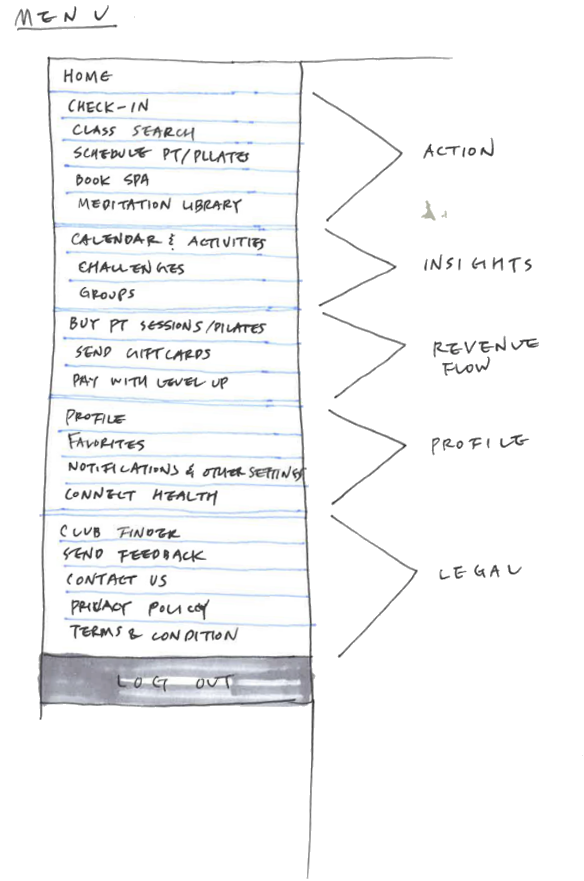 MENU
HOME
CHECK-IN
CLASS SEARCH
SCHEDULE PT/PILATES
BOOK SPA
MEDITATION LIBRARY
ACTION
CALENDAR & ACTIVITIES
CHALLENGES
GROUPS
INSIGHTS
BUY PT SESSIONS/PILATES
SEND GIFT CARDS
PAY WITH LEVEL UP
REVENUE
FLOW
PROFILE
FAVORITES
NOTIFICATIONS & OTHER SETTINGS
CONNECT HEALTH
PROFILE
CLUB FINDER
SEND FEEDBACK
CONTACT US
PRIVACY POLICY
TERMS & CONDITION
LEGAL
LOG OUT